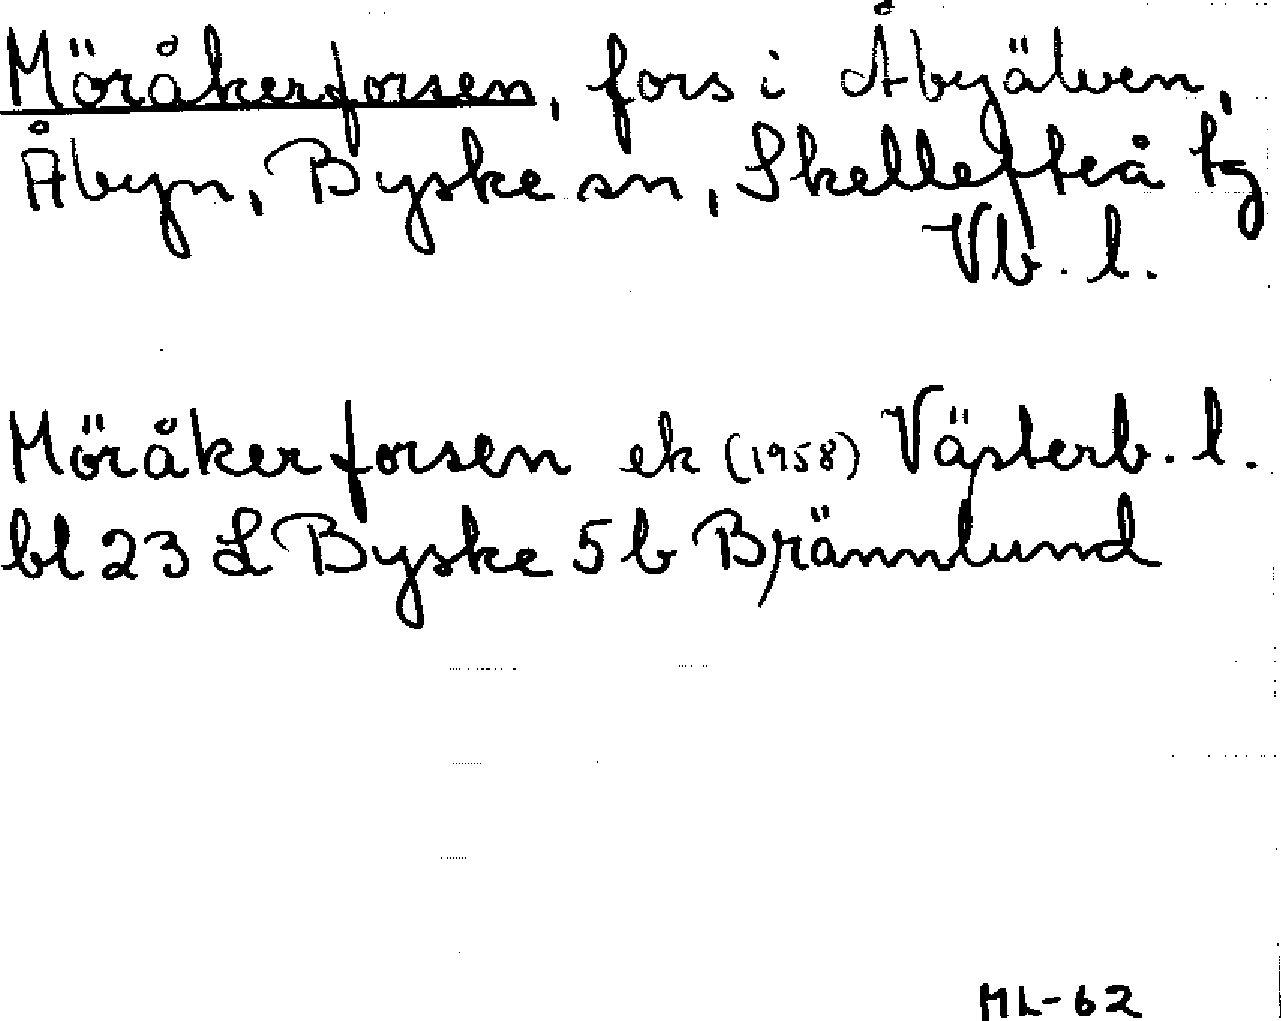 Möråkerforsen, fors i Åbyälven,
Åbyn, Byske sn, Skellefteå tg
Vb. l.
Möråkerforsen ek (1958) Västerb. l.
bl 23 L Byske 5 b Brännlund
ML-62